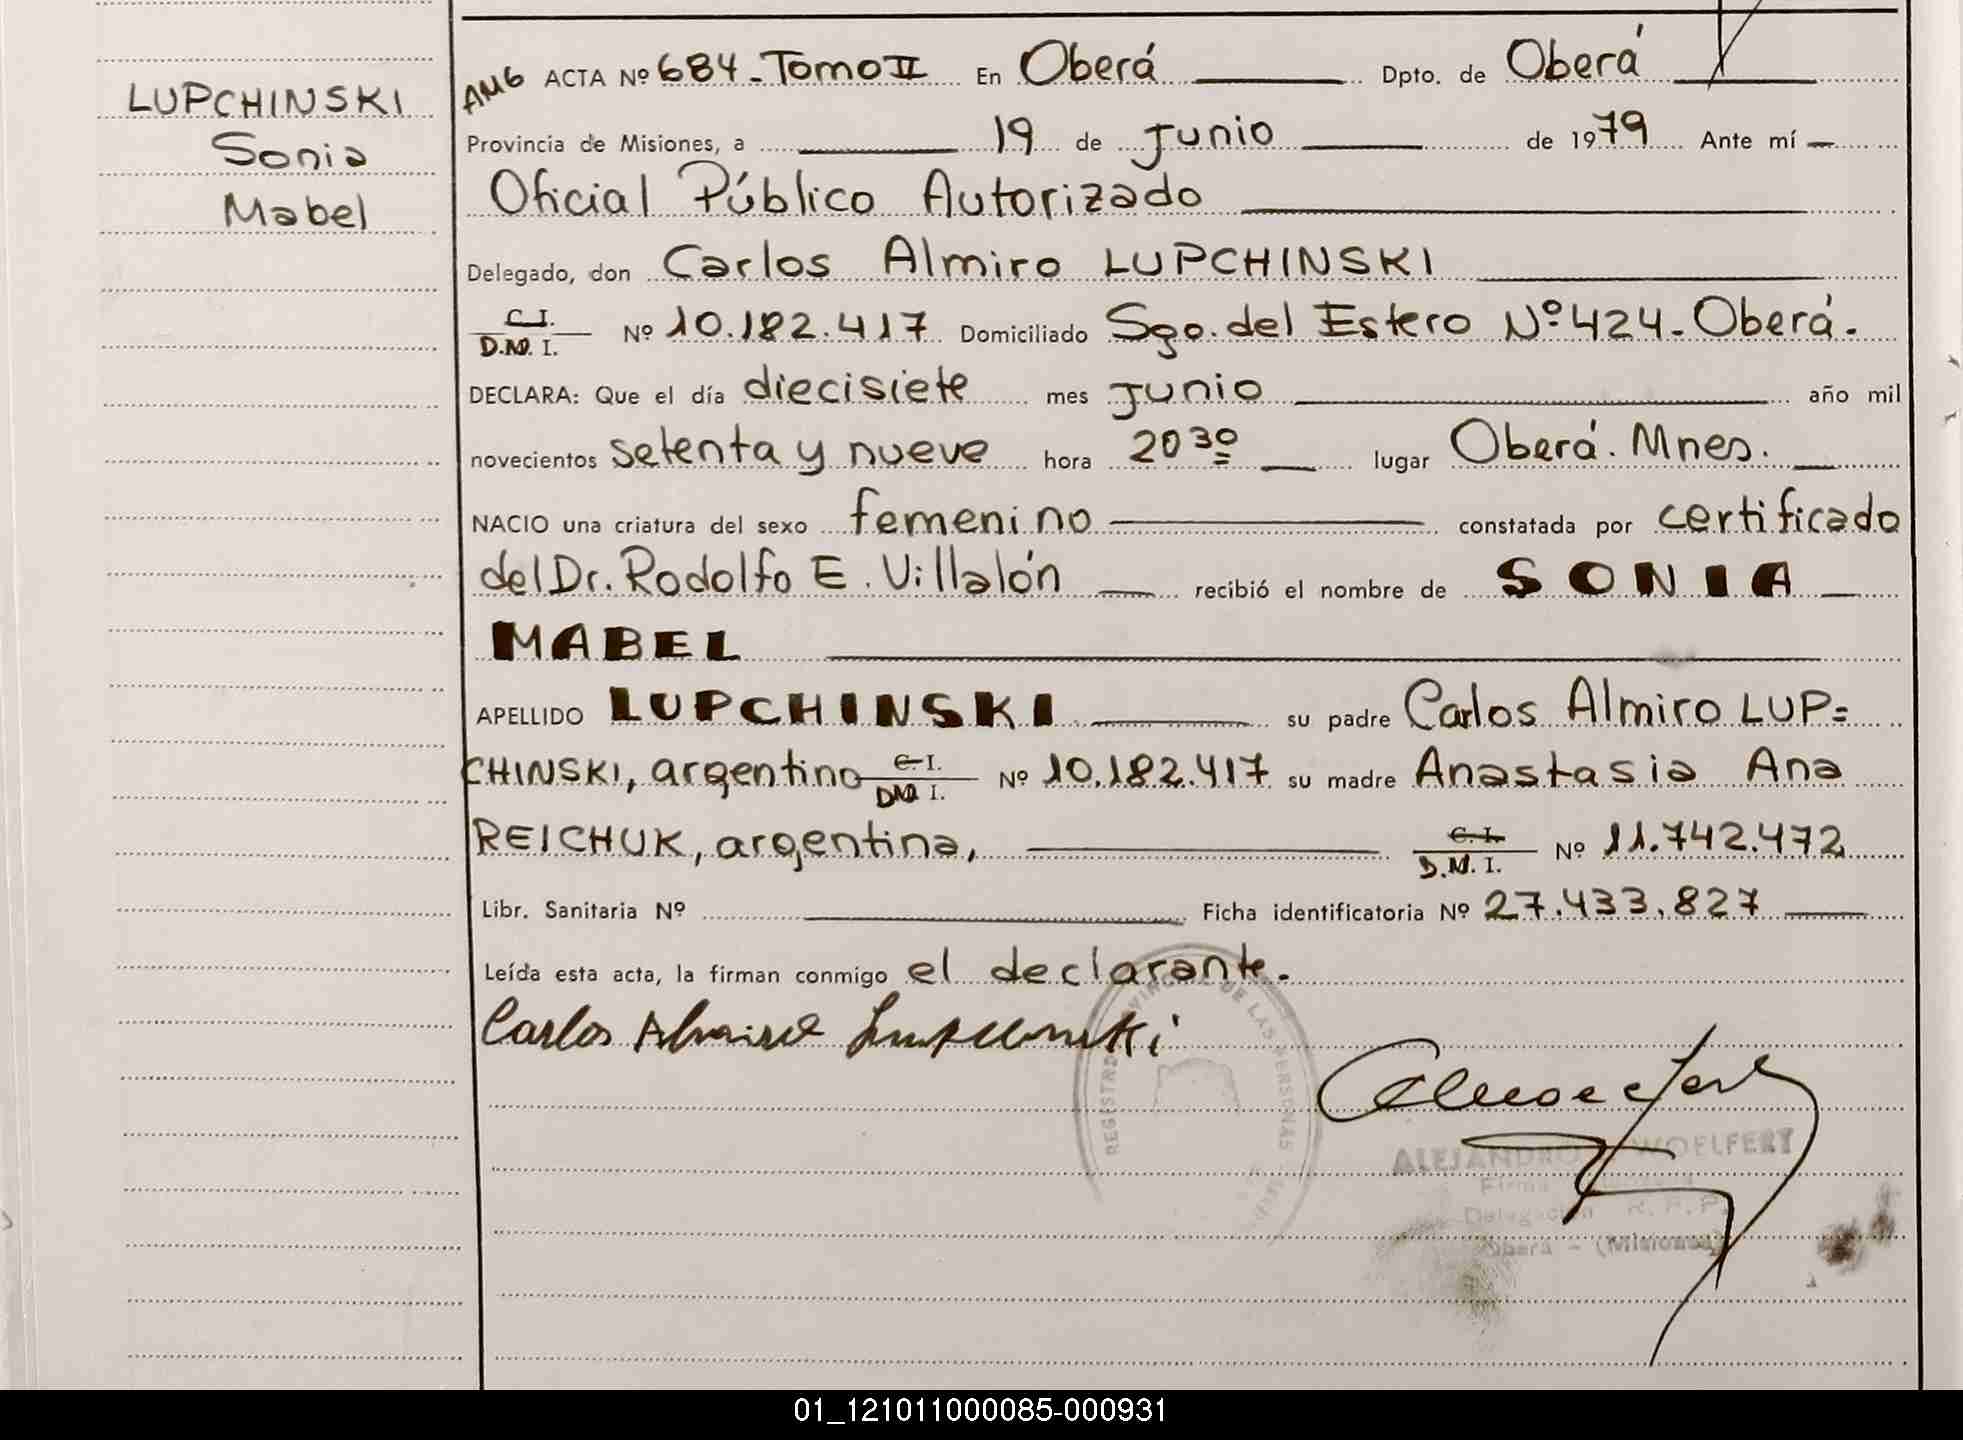 LUPCHINSKI
Sonia
Mabel
AMG ACTA Nº 684 - Tomo II En Oberá Dpto. de Oberá
Provincia de Misiones, a 19 de Junio de 1979 Ante mí
Oficial Público Autorizado
Delegado, don Carlos Almiro LUPCHINSKI
C.I.
D.N.I. Nº 10.182.417 Domiciliado Sgo. del Estero Nº 424 - Oberá.
DECLARA: Que el día diecisiete mes Junio año mil
novecientos setenta y nueve hora 20 30 lugar Oberá. Mnes.
NACIO una criatura del sexo femenino constatada por certificado
del Dr. Rodolfo E. Villalón recibió el nombre de SONIA
MABEL
APELLIDO LUPCHINSKI su padre Carlos Almiro LUP=
CHINSKI, argentino C.I. Nº 10.182.417 su madre Anastasia Ana
D.N.I.
REICHUK, argentina, C.I. Nº 11.742.472
D.N.I.
Libr. Sanitaria Nº Ficha identificatoria Nº 27.433.827
Leída esta acta, la firman conmigo el declarante.
Carlos Almiro Lupchinski
REGISTRO PROVINCIAL DE LAS PERSONAS
ALEJANDRO WOELFERT
Firma
Delegación R. P. P.
Oberá - (Misiones)
01_121011000085-000931